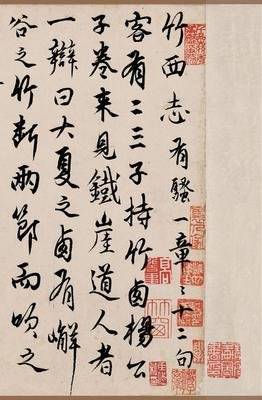 竹西志有騷一章〻十二句
客有二三子持竹卤楊公
子卷來見鐵崖道人者
一辯曰大夏之卤有嶰
谷之竹斬兩節而吹之